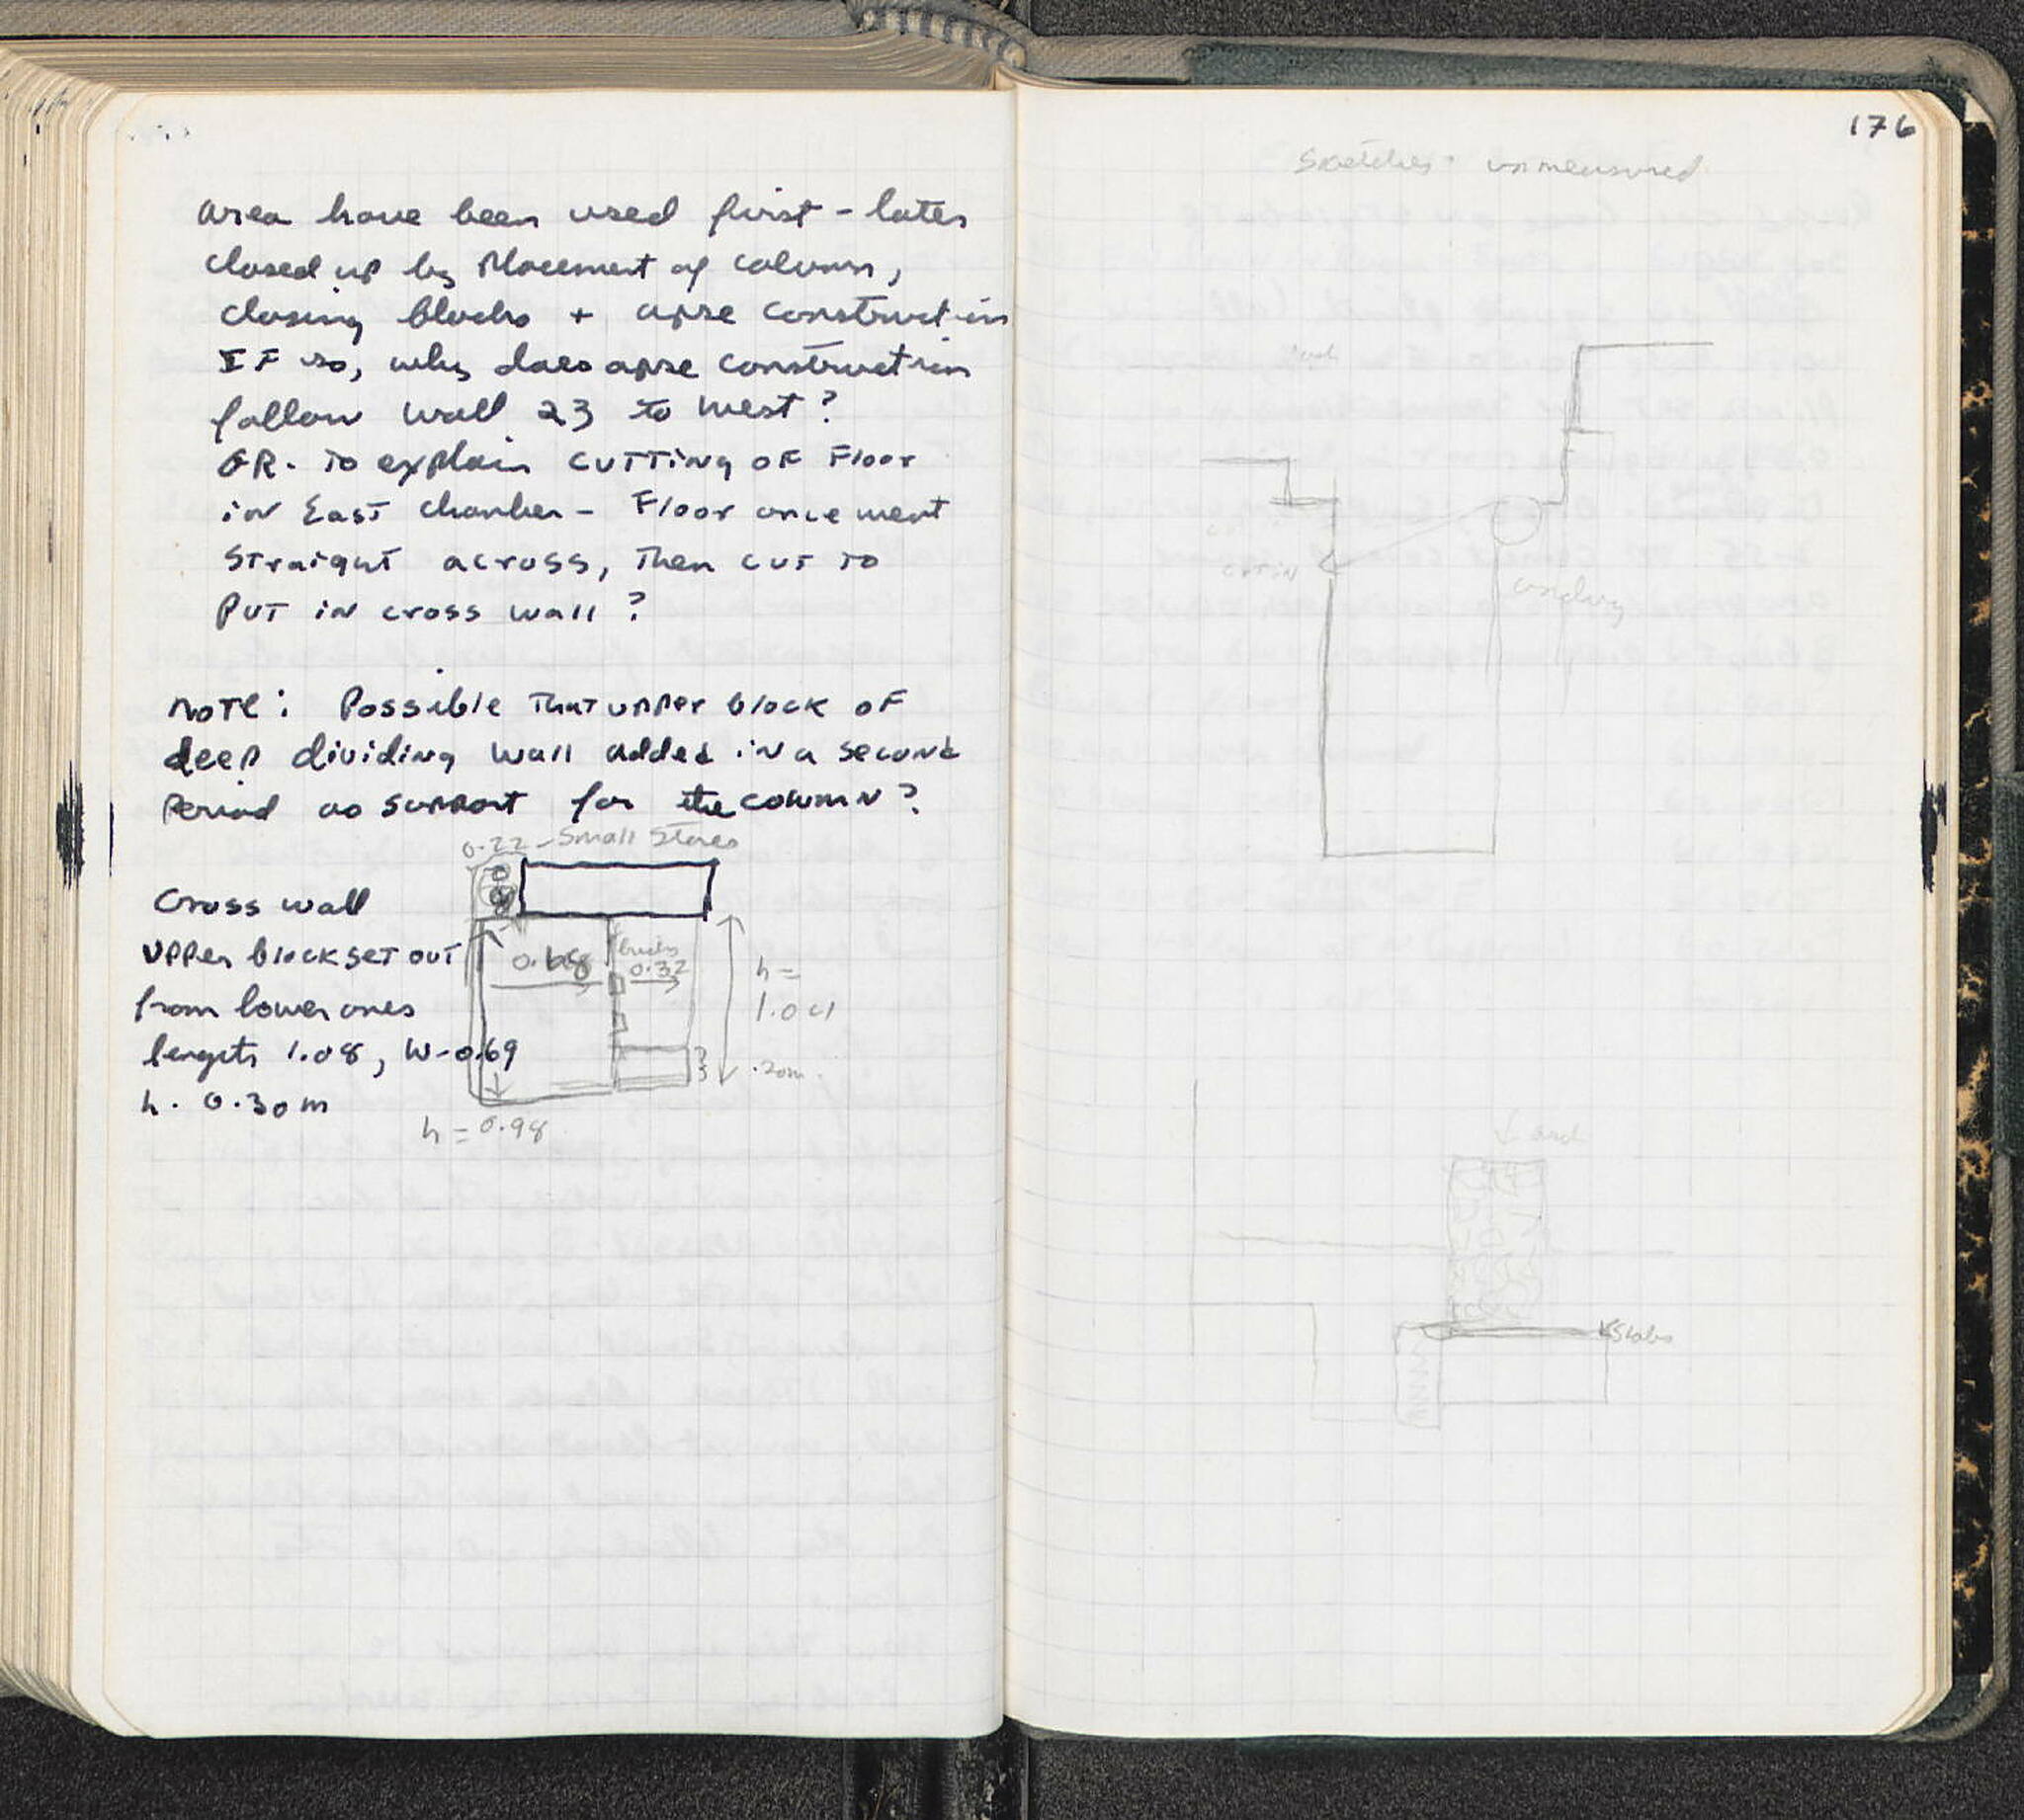 area have been used first - later
closed up by placement of column,
closing blocks + apse construction
IF so, why does apse construction
follow wall 23 to west?
OR. To explain cutting of Floor
in East chamber - Floor once went
straight across, Then cut to
put in cross wall?
Note: Possible That upper block of
deep dividing wall added in a second
period as support for the column?
0.22 - Small Stones
Cross wall
upper block set out
from lower ones
length 1.08, W-0.69
h. 0.30m
0.68
bricks
0.32
h =
1.01
.20m.
h = 0.98
176
Sketches - unmeasured
↓ arch
Slabs